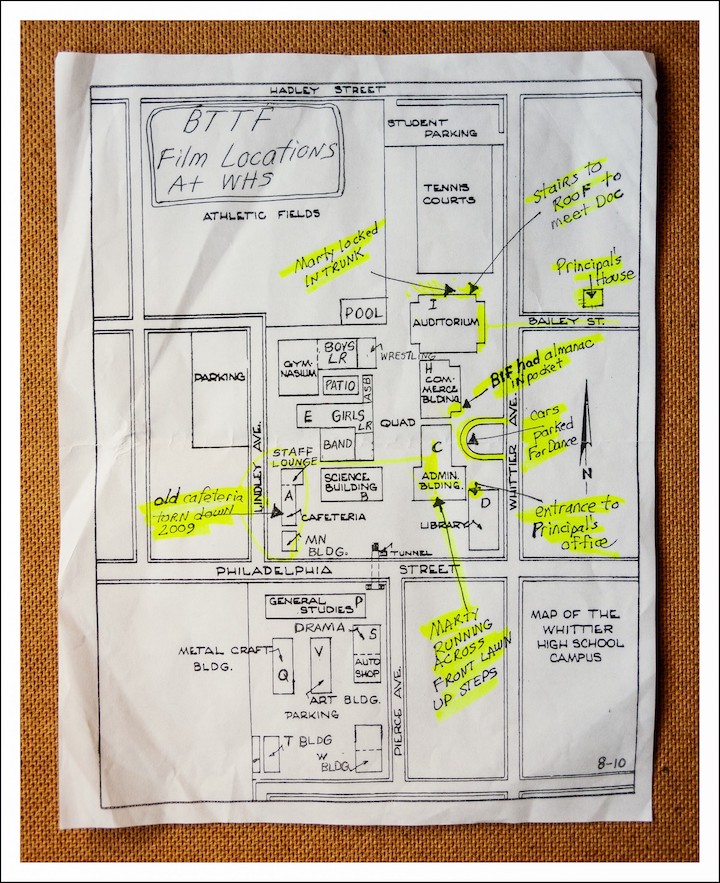 HADLEY STREET
BTTF
Film Locations
At WHS
STUDENT
PARKING
ATHLETIC FIELDS
TENNIS
COURTS
Stairs to
ROOF to
meet Doc
Marty locked
IN TRUNK
Principal's
House
POOL
I
AUDITORIUM
BAILEY ST.
PARKING
GYM-
NASIUM
BOYS
LR
WRESTLING
PATIO
ASB
E GIRLS
LR
BAND
QUAD
H
COM-
MERCE
BLDING
BIF had almanac
IN pocket
WHITTIER AVE.
Cars
parked
For Dance
N
LINDLEY AVE.
STAFF
LOUNGE
A
CAFETERIA
MN
BLDG.
SCIENCE
BUILDING
B
C
ADMIN.
BLDING.
D
LIBRARY
old cafeteria
torn down
2009
entrance to
Principal's
office
TUNNEL
PHILADELPHIA STREET
GENERAL
STUDIES P
DRAMA
S
AUTO
SHOP
METAL CRAFT
BLDG.
Q
V
ART BLDG.
PARKING
T BLDG
W
BLDG.
PIERCE AVE.
MARTY
RUNNING
ACROSS
FRONT LAWN
UP STEPS
MAP OF THE
WHITTIER
HIGH SCHOOL
CAMPUS
8-10